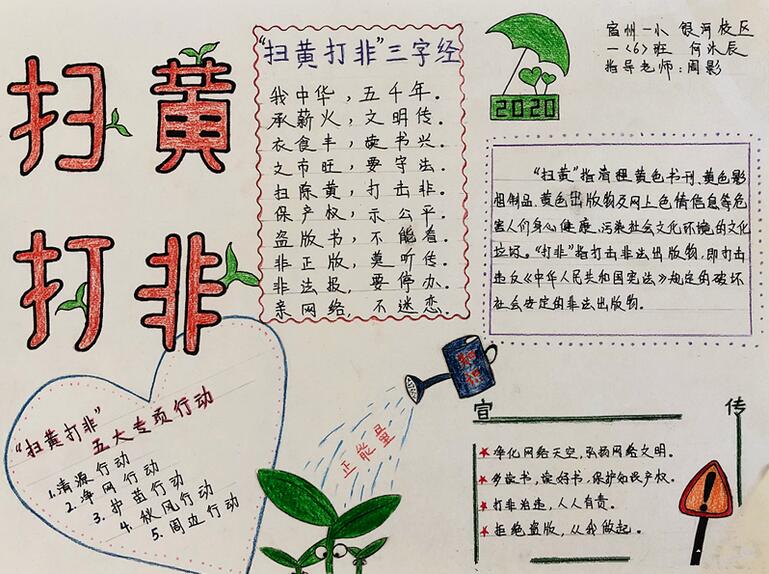 扫黄
打非
“扫黄打非”三字经
我中华，五千年。
承薪火，文明传。
衣食丰，读书兴。
文市旺，要守法。
扫除黄，打击非。
保产权，示公平。
盗版书，不能看。
非正版，莫听传。
非法报，要停办。
亲网络，不迷恋。
2020
宿州一小 银河校区
一〈6〉班 何沐辰
指导老师：周影
“扫黄”指清理黄色书刊、黄色影
相制品、黄色出版物及网上色情信息等危
害人们身心健康、污染社会文化环境的文化
垃圾。“打非”指打击非法出版物，即打击
违反《中华人民共和国宪法》规定的破坏
社会安定的非法出版物。
“扫黄打非”
五大专项行动
1.清源行动
2.净网行动
3.护苗行动
4.秋风行动
5.固边行动
知识
正能量
宣传
净化网络天空，弘扬网络文明。
多读书，读好书，保护知识产权。
打非治违，人人有责。
拒绝盗版，从我做起。